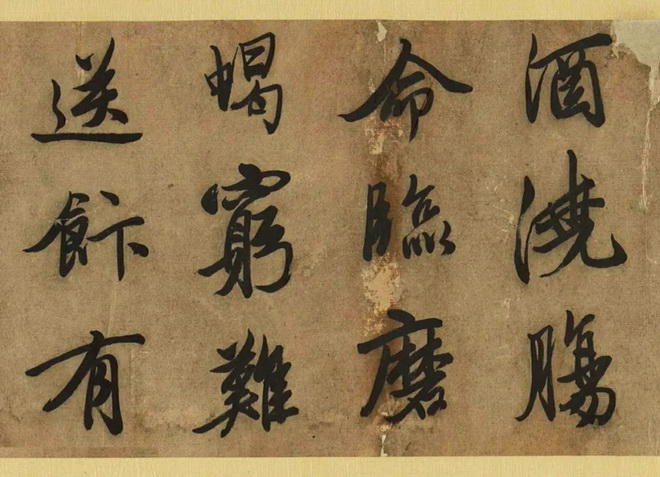 酒澆腸
命臨磨
蝎窮難
送飰有